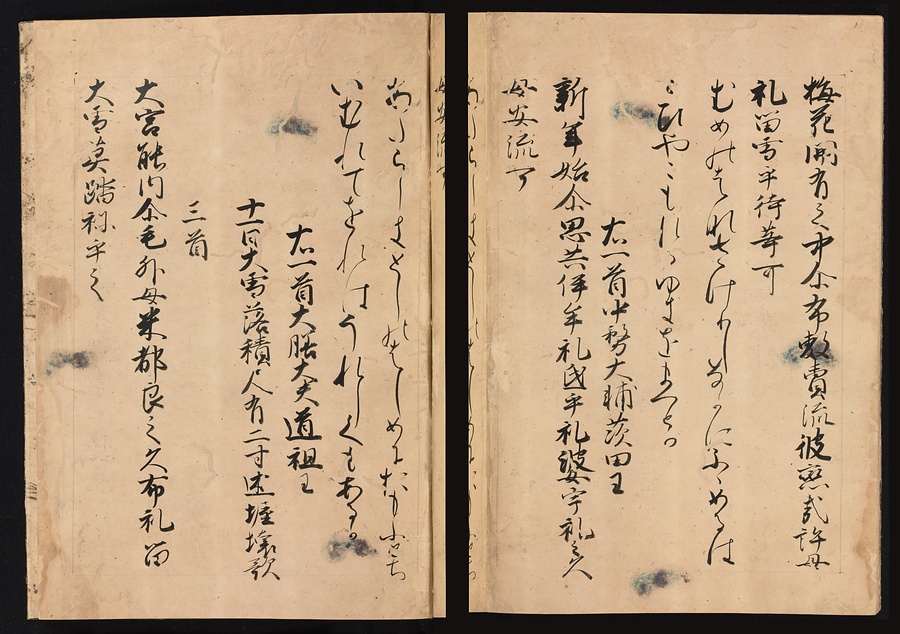 梅花開有之中尓布敷賣流波戀哉許母
礼留雪乎待等可
むめのはなさけるかなかにふゝめるは
こひやこもれるゆきをまつとか
右一首中務大輔茨田王
新年始尓思共伊牟礼氐乎礼婆宇礼之久
母安流可
あたらしきとしのはしめにおもふとち
いむれてをれはうれしくもあるか
右一首大膳大夫道祖王
十一日大雪落積尺有二寸述拙懐歌
三首
大宮能内尓毛外母米都良之久布礼留
大雪莫踏祢乎之